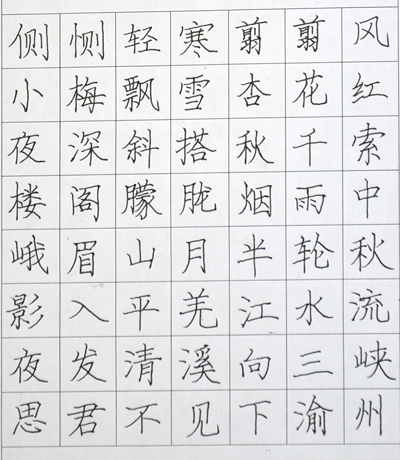 侧恻轻寒翦翦风
小梅飘雪杏花红
夜深斜搭秋千索
楼阁朦胧烟雨中
峨眉山月半轮秋
影入平羌江水流
夜发清溪向三峡
思君不见下渝州